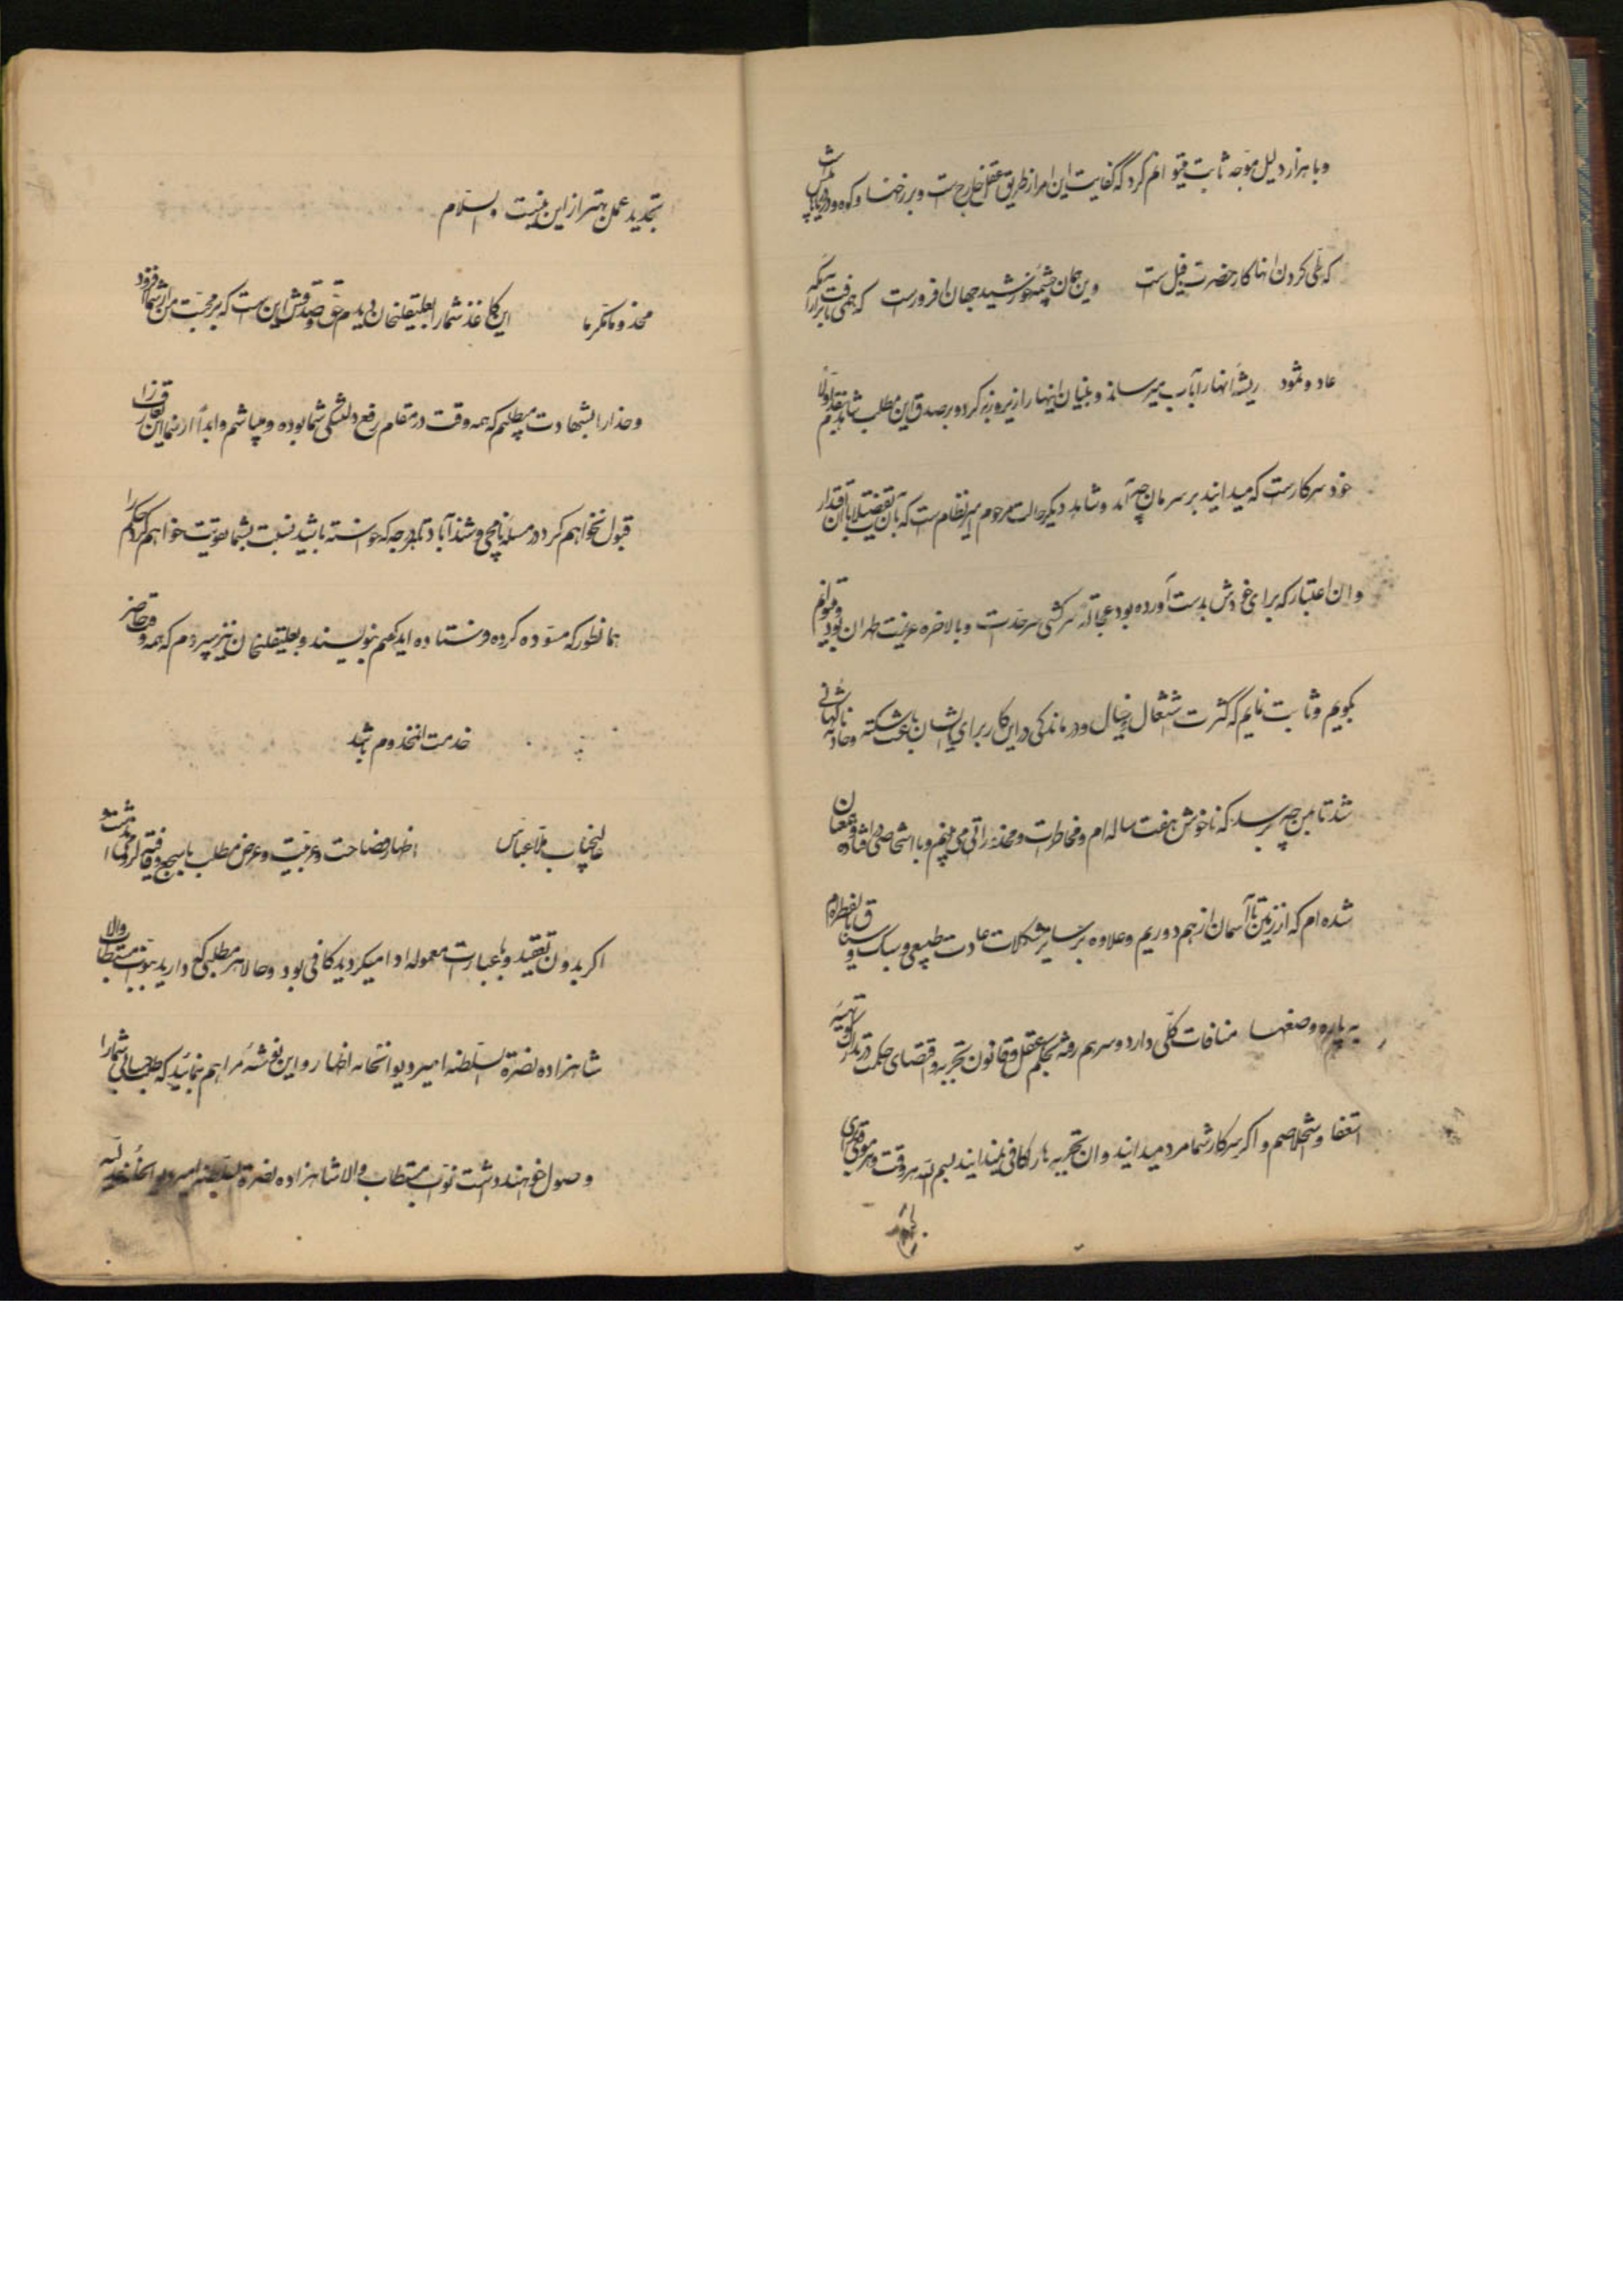 و با هزار دلیل موجه ثابت میتوانم کرد که کفایت این امر از طریق عقل خارج است و برزخها و کوه و دریاها
که طی کردن انها کار حضرت فیل است وین همان چشمه خورشید جهان افروزست که همی تافت بر آرامگه
عاد و ثمود ریشه انها را بآب میرساند و بنیان اینها را زیر و زبر کرد و بر صدق این مطلب شاهد اولا
خود سرکارست که میدانید بر سر مان چه آمد و شاهد دیگر حالت مرحوم امیرنظام است که بآن تفصیلات بآن اقتدار
و ان اعتبار که برای خودش بدست آورده بود سرکشی سرحدات و بالاخره عزیمت طهران بود و میتوانم
بگویم و ثابت نمایم که کثرت اشتغال و خیال و درماندگی در این کار برای ایشان باعث سکته و حادثه ناگهانی
شد تا بمن چه برسد که ناخوش هفت ساله ام و مخاطرات می بینم و با اشخاصی
شده ام که از زمین تا آسمان از هم دوریم و علاوه بر سایر مشکلات عادت طبیعی و سبک و سیاق
به پاره وضعها منافات کلی دارد و سر هم رفته بحکم عقل و قانون تجربه و اقتضای حکمت در تدارک تهیه
استعفا و استخلاصم و اگر سرکار شما مرد میدانید و ان تجربه ها را کافی نمیدانید بسم الله هر وقت
تجدید عمل بهتر از این نیست والسلام
مخدوما مکرما این کاغذ شما را بعلیقلیخان دیدم حق و صدقش این است که بر محبت من از شما افزود
و خدا را بشهادت میطلبم که همه وقت در مقام رفع دلتنگی شما بوده و میباشم و ابداً از شما این
قبول نخواهم کرد در مسئله و رشدآباد تا هر درجه که خواسته باشید نسبت بشما تقویت خواهم کرد حکم را
همانطور که مسوده کرده فرستاده اید گفتم بنویسند و بعلیقلیخان نیز سپردم که همه وقت حاضر
خدمت المخدوم باشد
عالیجناب ملا عباس اظهار فضاحت و عربیت و عرض مطلب با سجع و قافیه لزومی نداشت
اگر بدون تعقید و با عبارت معموله ادا میکردید کافی بود و حالا هر مطلبی که دارید بنواب مستطاب والا
شاهزاده نصرة السلطنه امیر دیوانخانه اظهار و این نوشته مرا هم بنمائید که مطالب حسابی شما را
وصول خواهند داشت نواب مستطاب والا شاهزاده نصرة السلطنه امیر دیوانخانه